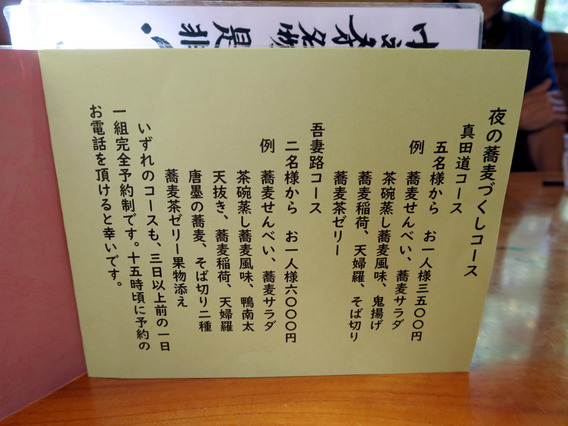 夜の蕎麦づくしコース
真田道コース
五名様から　お一人様三五〇〇円
例　蕎麦せんべい、蕎麦サラダ
茶碗蒸し蕎麦風味、鬼揚げ
蕎麦稲荷、天婦羅、そば切り
蕎麦茶ゼリー
吾妻路コース
二名様から　お一人様六〇〇〇円
例　蕎麦せんべい、蕎麦サラダ
茶碗蒸し蕎麦風味、鴨南太
天抜き、蕎麦稲荷、天婦羅
唐墨の蕎麦、そば切り二種
蕎麦茶ゼリー果物添え
いずれのコースも、三日以上前の一日
一組完全予約制です。十五時頃に予約の
お電話を頂けると幸いです。